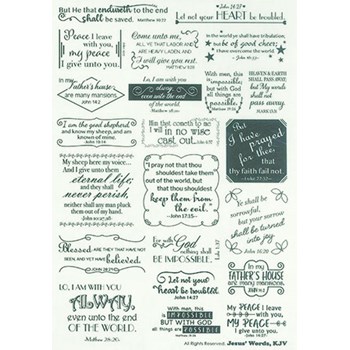 But He that endureth to the end
shall be saved. Matthew 10:22
John 14:27
Let not your HEART be troubled.
Peace I leave
with you,
my peace
I give unto you.
Come unto me,
ALL YE THAT LABOR AND
ARE HEAVY LADEN, AND
I will give you rest.
In the world ye shall have tribulation,
but be of good cheer;
I have overcome the world.
In my
Father's house
are many mansions.
John 14:2
Lo, I am with you
alway,
even unto the end
of the world.
IMPOSSIBLE.
BUT WITH GOD
all things
are possible.
HEAVEN & EARTH
SHALL PASS AWAY,
BUT
My words
shall not
pass away.
I am the good shepherd
and know my sheep, and am
known of mine.
Him that cometh to me
I will in no wise
cast out.
But
I have
prayed
for thee,
that
thy faith fail not.
My sheep hear my voice...
And I give unto them
eternal life;
and they shall
never perish,
neither shall any man pluck
them out of my hand.
"I pray not that thou
shouldest take them
out of the world, but
that thou shouldest
keep them from
the evil."
John 17:15
Ye shall be
sorrowful,
but your sorrow
shall be
turned
into joy.
Blessed ARE THEY THAT HAVE NOT
SEEN, AND YET HAVE believed.
For with God
nothing shall
BE IMPOSSIBLE.
In my
FATHER'S HOUSE
are many mansions
John 14:2
LO, I AM WITH YOU
ALWAY,
even unto the end
OF THE WORLD.
Matthew 28:20
Let not your
heart be troubled.
John 14:27
With man, this is
IMPOSSIBLE
BUT WITH GOD
all things are POSSIBLE
My PEACE I
leave with you,
MY PEACE I
GIVE unto you.
John 14:27
All Rights Reserved. Jesus' Words, KJV